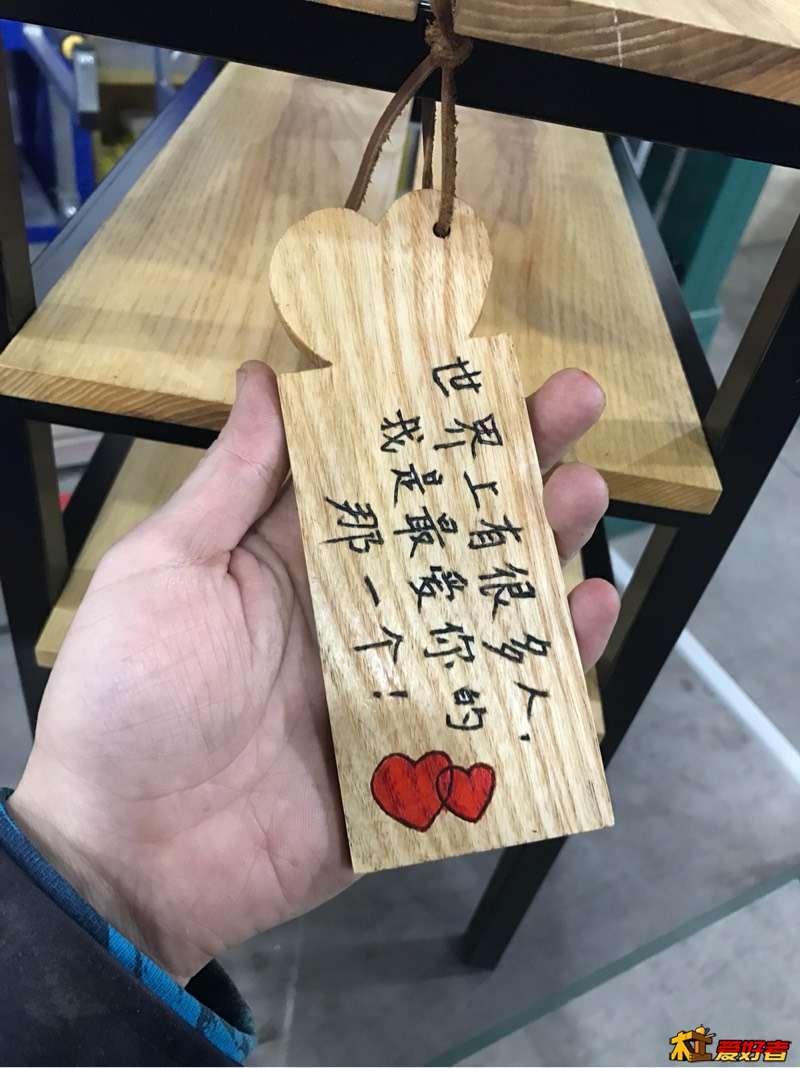 世界上有很多人，
我是最爱你的
那一个！
木工爱好者